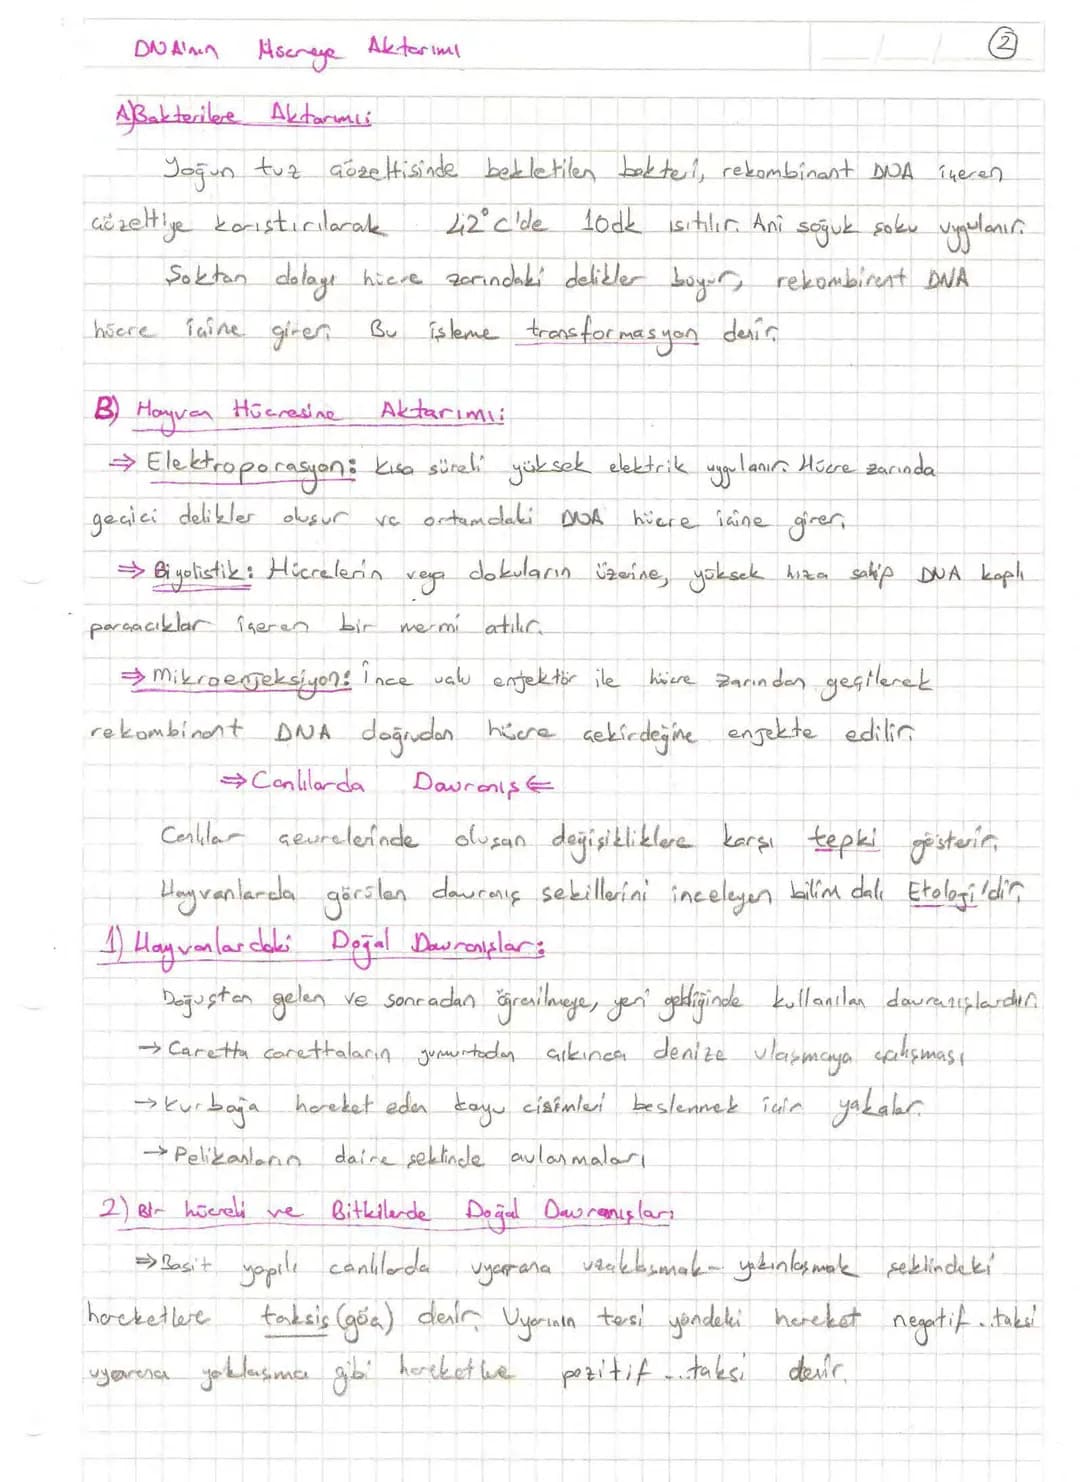 DNA'nın Hücreye Aktarımı
2
A) Bakterilere Aktarımı:
Yoğun tuz çözeltisinde bekletilen bakteri, rekombinant DNA içeren
çözeltiye karıştırılarak 42°C'de 10dk ısıtılır. Ani soğuk şoku uygulanır.
Şoktan dolayı hücre zarındaki delikler büyür, rekombinant DNA
hücre içine girer. Bu işleme transformasyon denir.
B) Hayvan Hücresine Aktarımı:
⇒ Elektroporasyon: Kısa süreli yüksek elektrik uygulanır. Hücre zarında
geçici delikler oluşur ve ortamdaki DNA hücre içine girer.
⇒ Biyolistik: Hücrelerin veya dokuların üzerine, yüksek hıza sahip DNA kaplı
parçacıklar içeren bir mermi atılır.
⇒ Mikroenjeksiyon: İnce uçlu enjektör ile hücre zarından geçilerek
rekombinant DNA doğrudan hücre çekirdeğine enjekte edilir.
⇒ Canlılarda Davranış ⇐
Canlılar çevrelerinde oluşan değişikliklere karşı tepki gösterir.
Hayvanlarda görülen davranış şekillerini inceleyen bilim dalı Etoloji'dir.
1) Hayvanlardaki Doğal Davranışlar:
Doğuştan gelen ve sonradan öğrenilmeye, yeri geldiğinde kullanılan davranışlardır.
→ Caretta carettaların yumurtadan çıkınca denize ulaşmaya çalışması
→ Kurbağa hareket eden koyu cisimleri beslenmek için yakalar.
→ Pelikanların daire şeklinde avlanmaları
2) Bir hücreli ve Bitkilerde Doğal Davranışlar:
⇒ Basit yapılı canlılarda uyarana uzaklaşmak - yakınlaşmak şeklindeki
hareketlere taksis (göç) denir. Uyarının tersi yöndeki hareket negatif ...taksi
uyarana yaklaşma gibi hareketlere pozitif ...taksi denir.